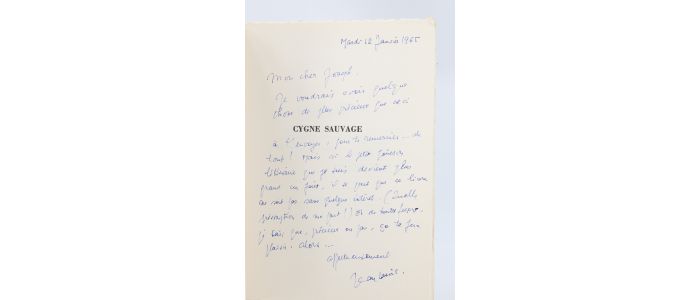 Mardi 12 Janvier 1965
Mon cher Joseph,
Je voudrais avoir quelque
chose de plus précieux que ceci
CYGNE SAUVAGE
à t'envoyer, pour te remercier... de
tout ! Mais si le petit
littéraire que je suis devient plus
grand un jour, il se peut que ce livre
ne soit pas sans quelque intérêt. (Quelle
prétention de ma part !) Et de toutes façons,
je sais que, précieux ou pas, ça te fera
plaisir. Alors...
affectueusement
Jean-Louis.